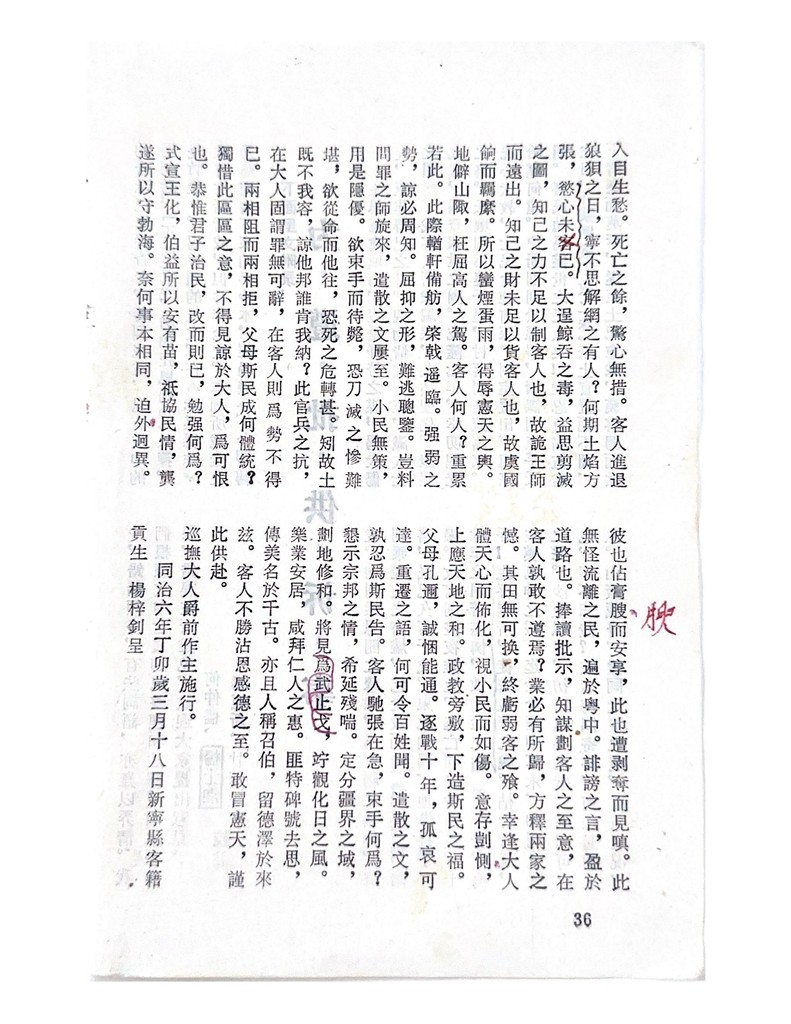 入目生愁。死亡之餘，驚心無措。客人進退
狼狽之日，寧不思解網之有人？何期土焰方
張，慾心未客已。大逞鯨吞之毒，益思剪滅
之圖，知己之力不足以制客人也，故詭王師
而遠出。知己之財未足以貨客人也，故虞國
餉而羈縻。所以蠻煙蛋雨，得辱憲天之輿。
地僻山陬，枉屈高人之駕。客人何人？重累
若此。此際輶軒備舫，棨戟遥臨。强弱之
勢，諒必周知。屈抑之形，難逃聰鑒。豈料
問罪之師旋來，遣散之文屢至。小民無策，
用是隱優。欲束手而待斃，恐刀滅之慘難
堪，欲從命而他往，恐死之危轉甚。矧故土
既不我容，諒他邦誰肯我納？此官兵之抗，
在大人固謂罪無可辭，在客人則爲勢不得
巳。兩相阻而兩相拒，父母斯民成何體統？
獨惜此區區之意，不得見諒於大人，爲可恨
也。恭惟君子治民，改而則已，勉强何爲？
式宣王化，伯益所以安有苗，祇協民情，龔
遂所以守勃海。奈何事本相同，迫外迥異。
彼也佔膏腴而安享，此也遭剥奪而見嗔。此
無怪流離之民，遍於粵中。誹謗之言，盈於
道路也。捧讀批示，知謀劃客人之至意，在
客人孰敢不遵焉？業必有所歸，方釋兩家之
憾。其田無可換，終虧弱客之飱。幸逢大人
體天心而佈化，視小民而如傷。意存剴惻，
上應天地之和。政教旁敷，下造斯民之福。
父母孔邇，誠悃能通。逐戰十年，孤哀可
達。重遷之語，何可令百姓聞。遣散之文，
孰忍爲斯民告。客人馳張在急，束手何爲？
懇示宗邦之情，希延殘喘。定分疆界之域，
劃地修和。將見爲武止戈，竚觀化日之風。
樂業安居，咸拜仁人之惠。匪特碑號去思，
傳美名於千古。亦且人稱召伯，留德澤於來
兹。客人不勝沾恩感德之至。敢冒憲天，謹
此供赴。
巡撫大人爵前作主施行。
同治六年丁卯歲三月十八日新寧縣客籍
貢生　楊梓釗呈
腴
36